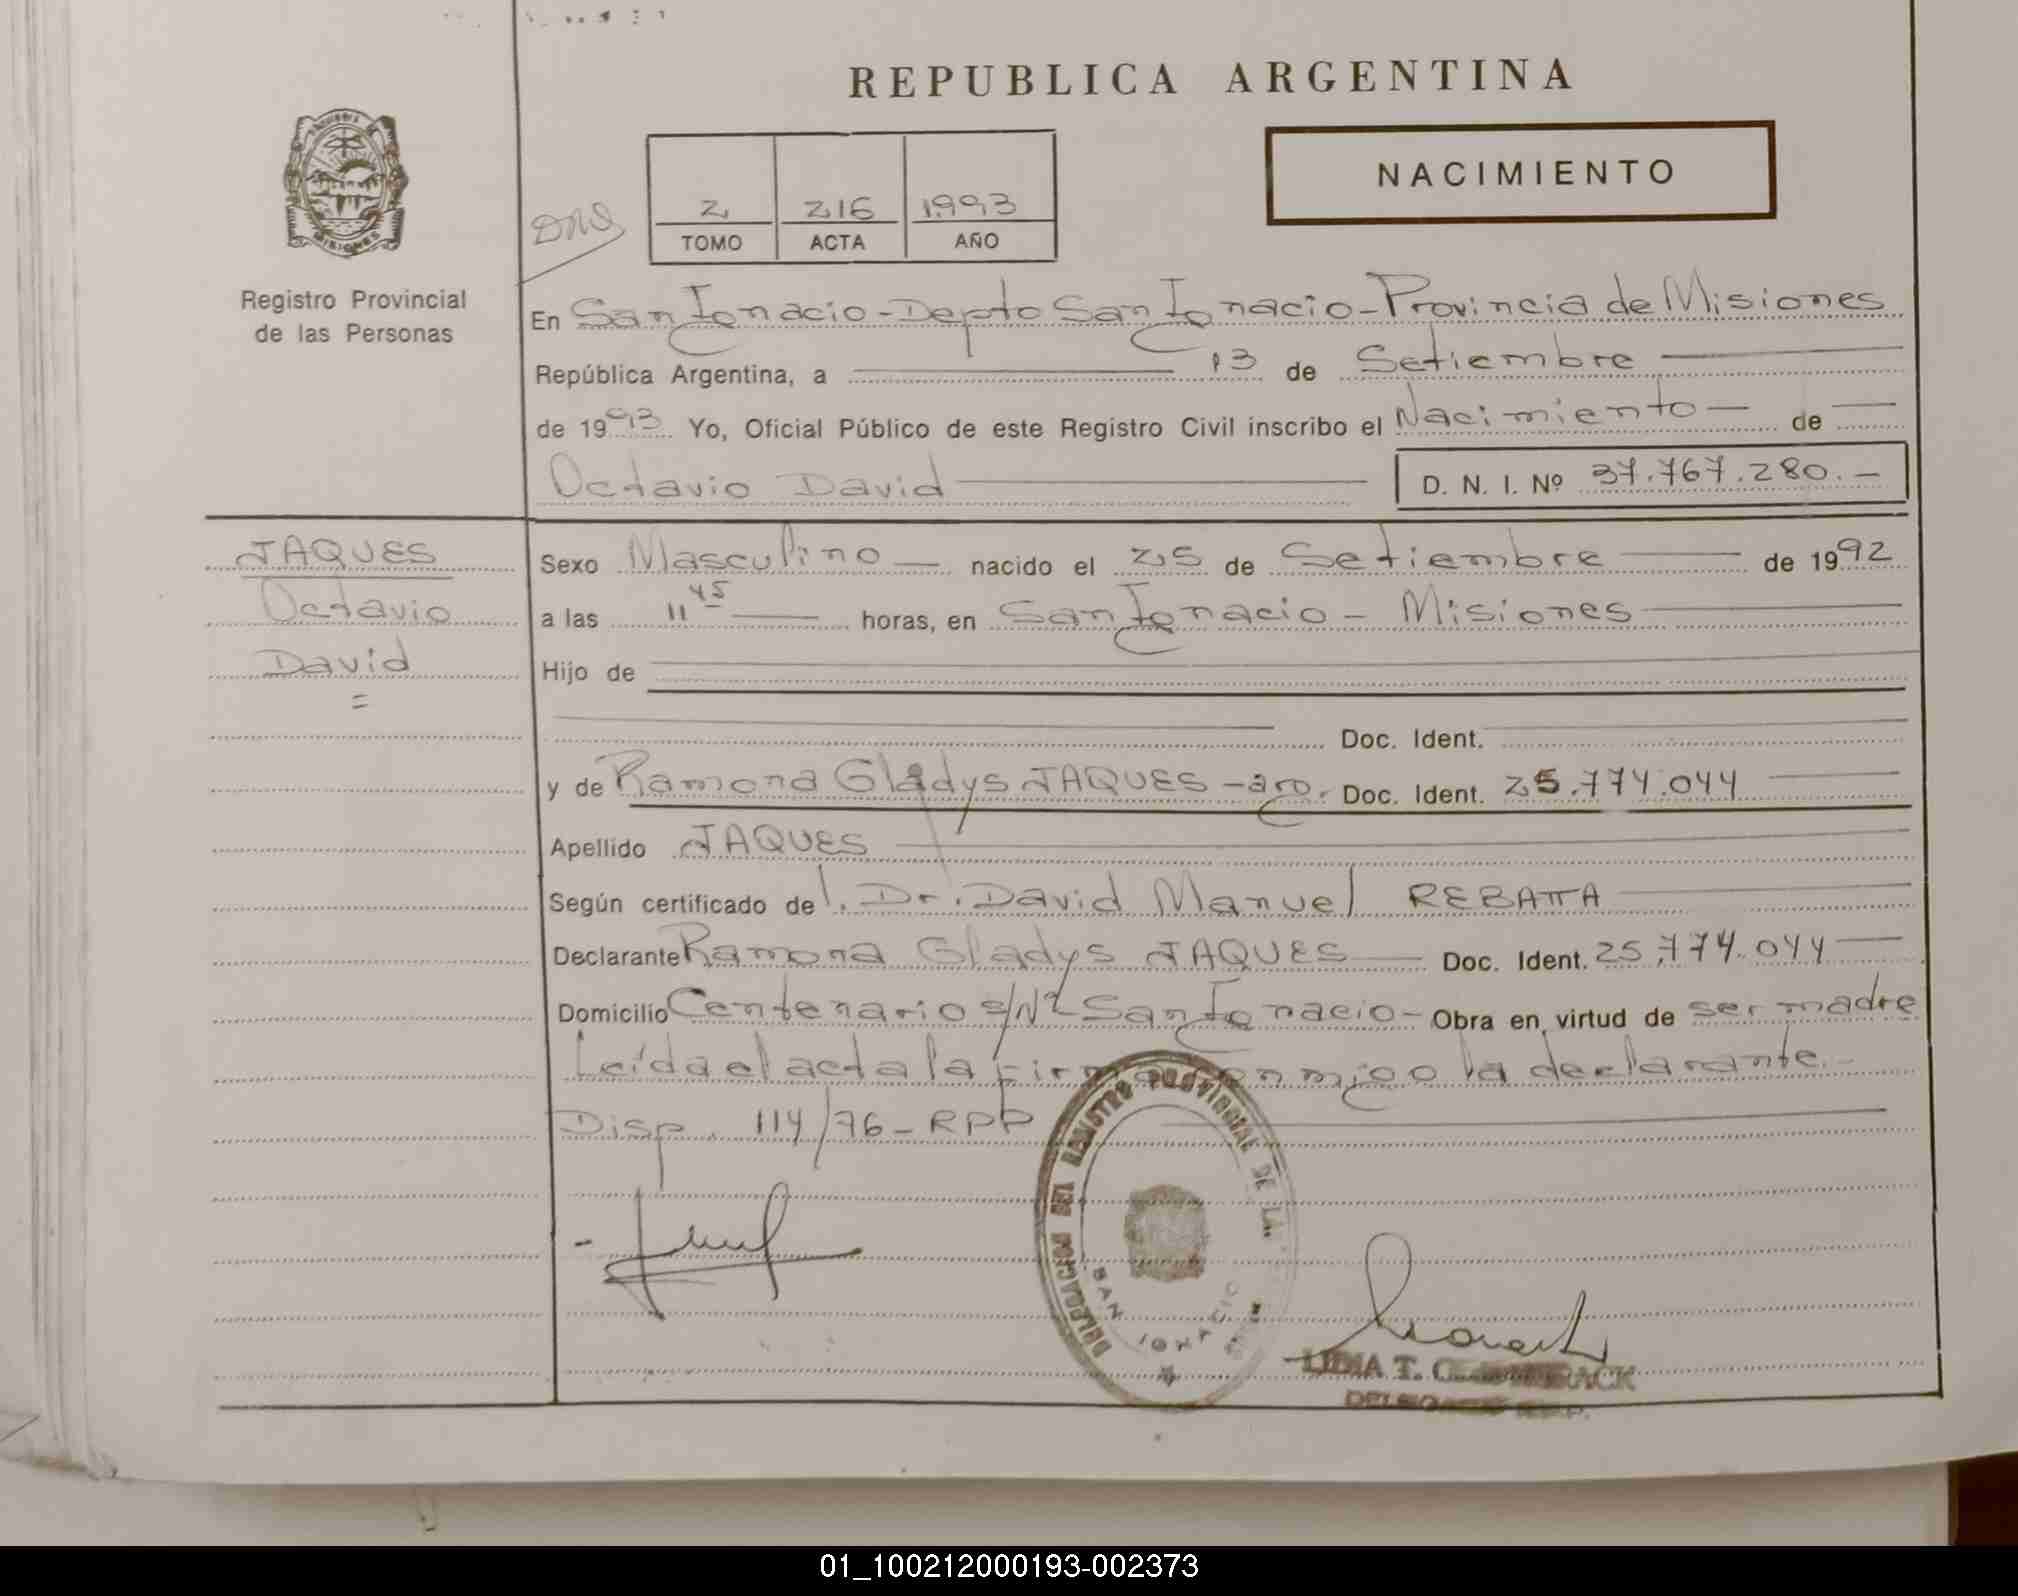 REPUBLICA ARGENTINA
NACIMIENTO
2 216 1993
TOMO ACTA AÑO
MISIONES
Registro Provincial
de las Personas
En San Ignacio - Depto San Ignacio - Provincia de Misiones
República Argentina, a 13 de Setiembre
de 1993 Yo, Oficial Público de este Registro Civil inscribo el Nacimiento - de
Octavio David D. N. I. Nº 37.767.280.-
JAQUES
Octavio
David
=
Sexo Masculino nacido el 25 de Setiembre de 1992
a las 11 45 horas, en San Ignacio - Misiones
Hijo de
Doc. Ident.
y de Ramona Gladys JAQUES - arg. Doc. Ident. 25.774.044
Apellido JAQUES
Según certificado del. Dr. David Manuel REBATTA
Declarante Ramona Gladys JAQUES Doc. Ident. 25.774.044
Domicilio Centenario s/Nº San Ignacio - Obra en virtud de ser madre
Leída el acta la firma conmigo la declarante.-
Disp. 114/76 - RPP
DELEGACION DEL REGISTRO PROVINCIAL DE LA
SAN IGNACIO
LIDIA T.
01_100212000193-002373